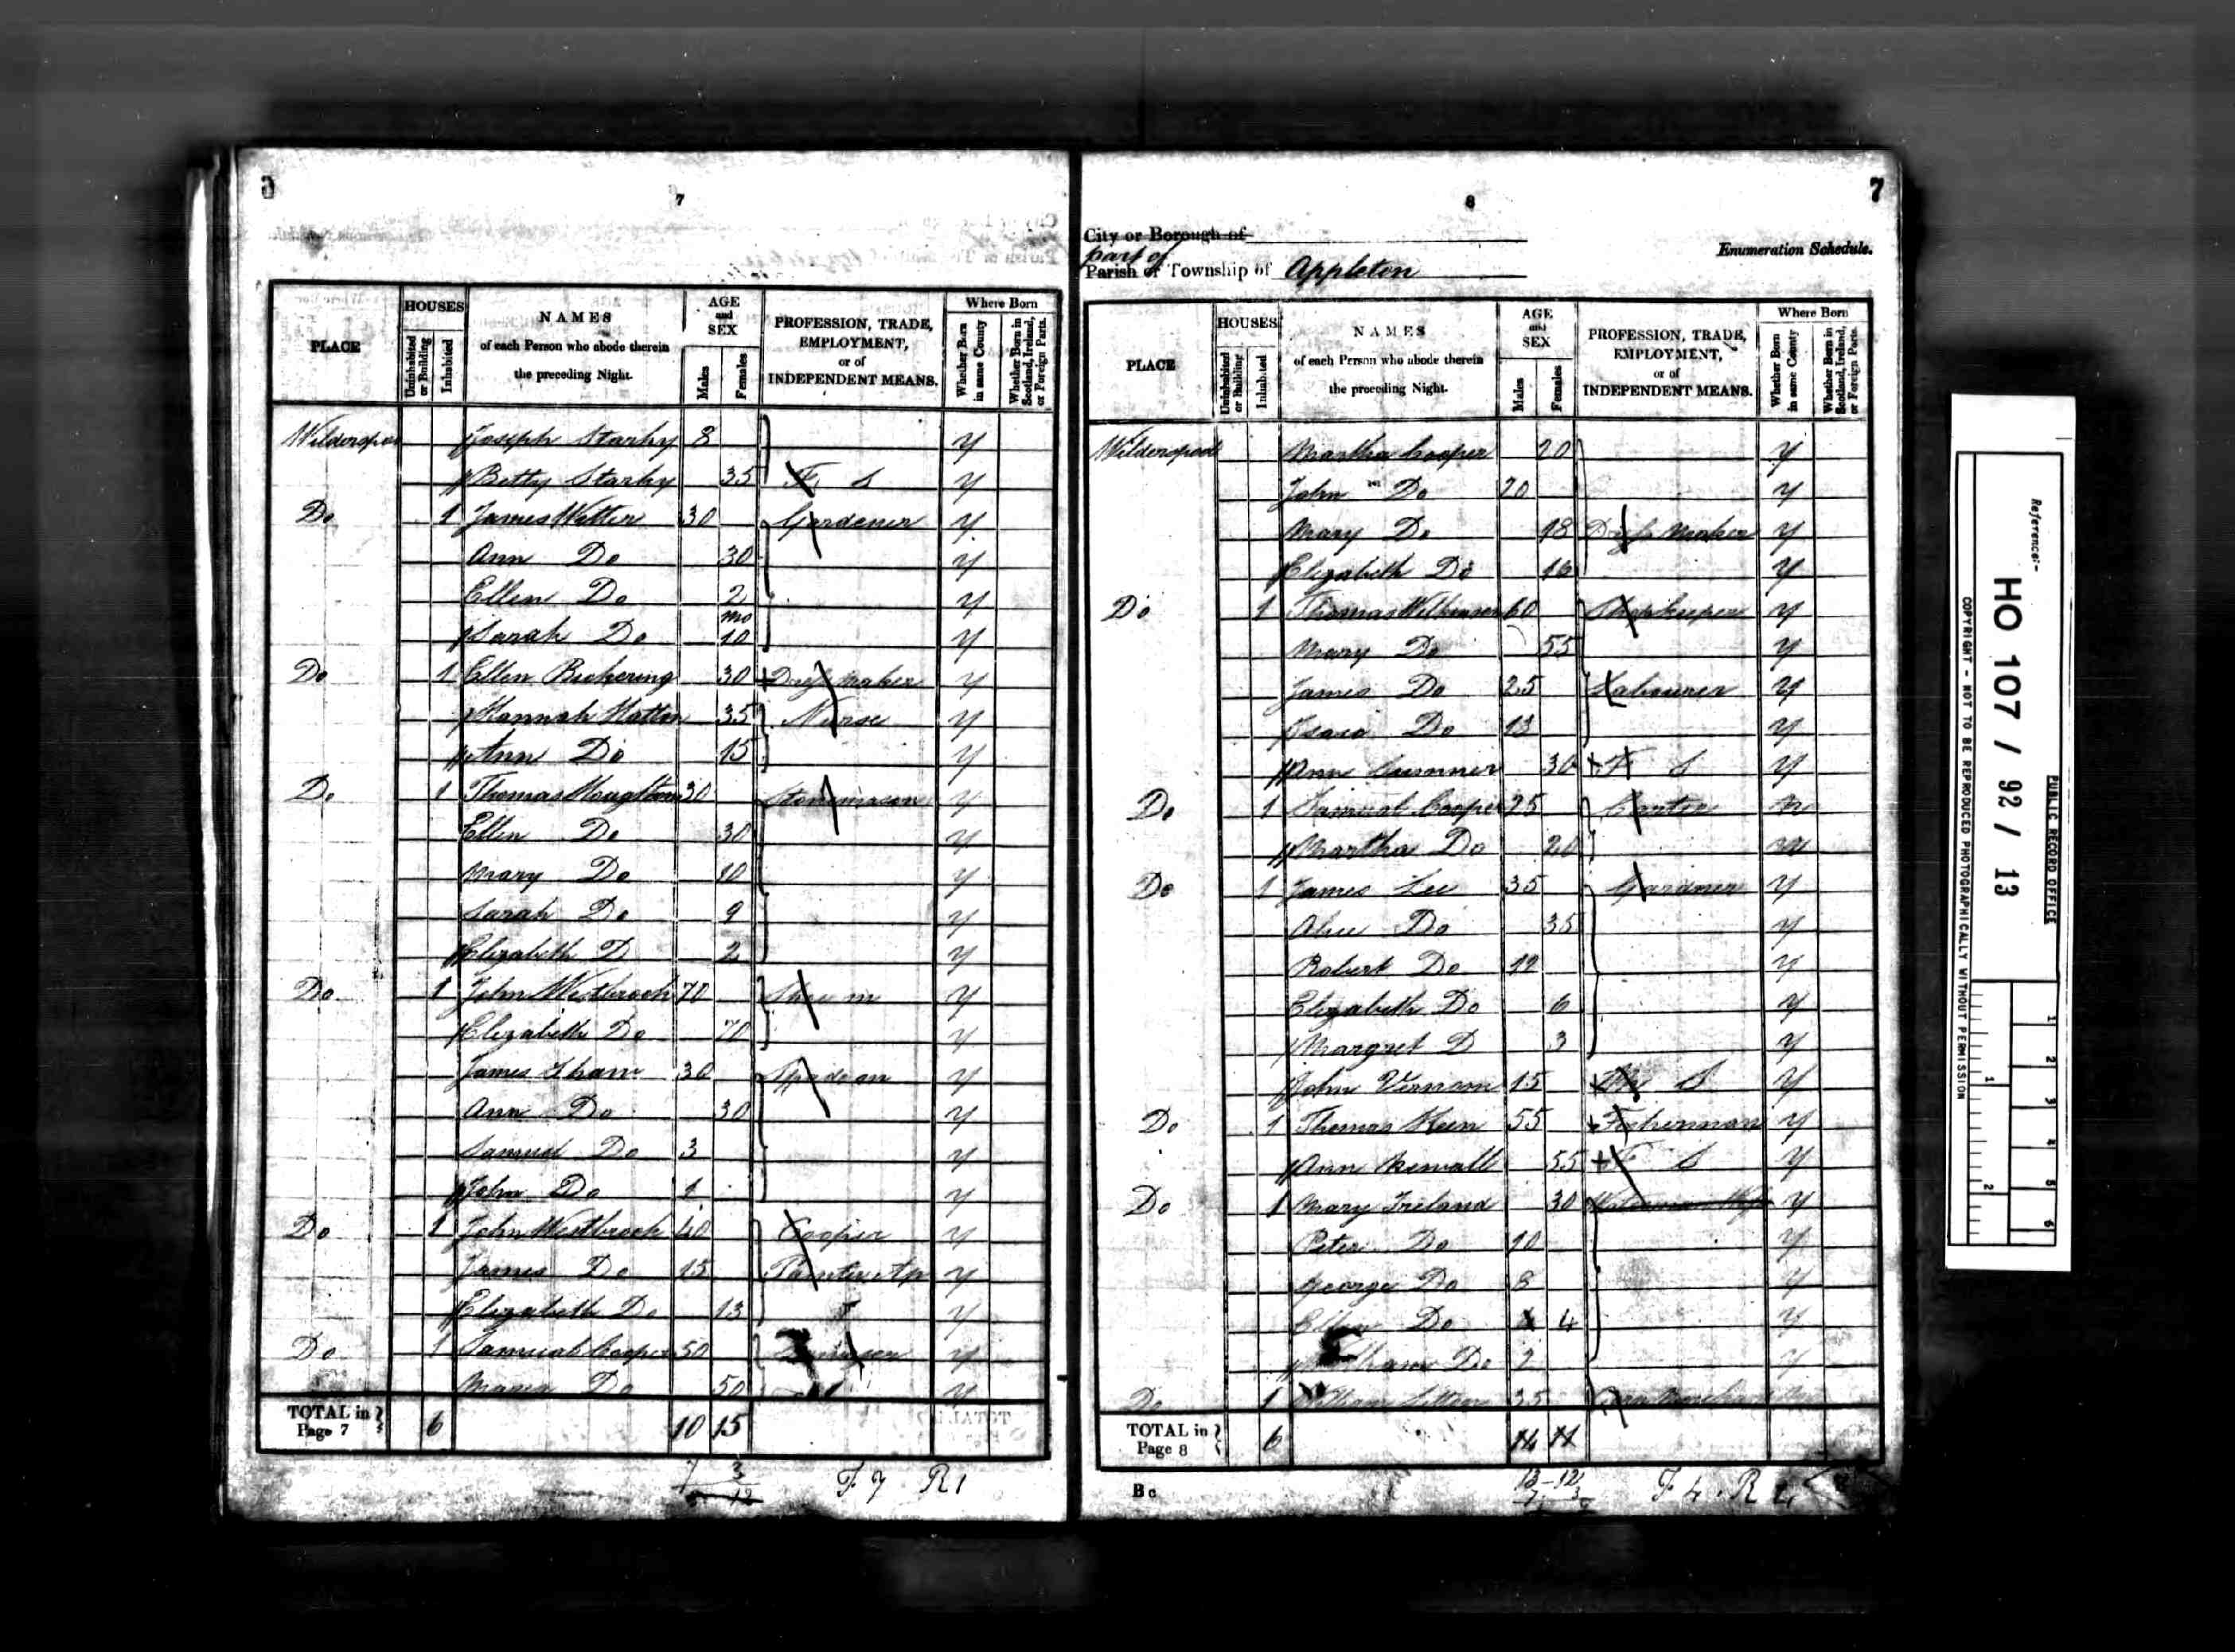 6
7
HOUSES
AGE
and
SEX
Where Born
PLACE
Uninhabited or Building
Inhabited
NAMES
of each Person who abode therein
the preceding Night.
Males
Females
PROFESSION, TRADE,
EMPLOYMENT,
or of
INDEPENDENT MEANS.
Whether Born in same County
Whether Born in Scotland, Ireland, or Foreign Parts.
Joseph Starky 8 y
Betty Starky 35 F S y
Do 1 James 30 Gardener y
Ann Do 30 y
Ellen Do 2 y
Sarah Do mo 10 y
Do 1 Ellen 30 Dress Maker y
Hannah Hatton 35 Nurse y
Ann Do 15 y
Do 1 Thomas Houghton 30 Stonemason y
Ellen Do 30 y
Mary Do 10 y
Sarah Do 9 y
Elizabeth D 2 y
Do 1 John Westbrook 70 y
Elizabeth Do 70 y
James Shaw 30 y
Ann Do 30 y
Samuel Do 3 y
John Do 1 y
Do 1 John Westbrook 40 Cooper y
James Do 15 Painter Ap y
Elizabeth Do 13 y
Do 1 Samuel Cooper 50 y
Maria Do 50 y
TOTAL in Page 7 6 10 15
7 3
12
F 7 R 1
8
7
City or Borough of
part of
Parish or Township of Appleton
Enumeration Schedule.
HOUSES
AGE
and
SEX
Where Born
PLACE
Uninhabited or Building
Inhabited
NAMES
of each Person who abode therein
the preceding Night.
Males
Females
PROFESSION, TRADE,
EMPLOYMENT,
or of
INDEPENDENT MEANS.
Whether Born in same County
Whether Born in Scotland, Ireland, or Foreign Parts.
Wilderspool Martha Cooper 20 y
John Do 20 y
Mary Do 18 Dress Maker y
Elizabeth Do 16 y
Do 1 Thomas Wilkinson 60 Shopkeeper y
Mary Do 55 y
James Do 25 Labourer y
Do 13 y
Ann 30 F S y
Do 1 Samuel Cooper 25 Carter n
Martha Do 20 n
Do 1 James Lee 35 Gardner y
Alice Do 35 y
Robert Do 12 y
Elizabeth Do 6 y
Margret D 3 y
John Vernon 15 M S y
Do 1 Thomas 55 Fisherman y
Ann 55 F S y
Do 1 Mary Ireland 30 y
Peter Do 10 y
George Do 8 y
Ellen Do 4 y
William Do 2 y
Do 1 William 35
TOTAL in Page 8 6 14 11
13 - 12
F 4. R
B c
Reference:-
HO 107 / 92 / 13
PUBLIC RECORD OFFICE
COPYRIGHT - NOT TO BE REPRODUCED PHOTOGRAPHICALLY WITHOUT PERMISSION
1
2
3
4
5
6
1
2